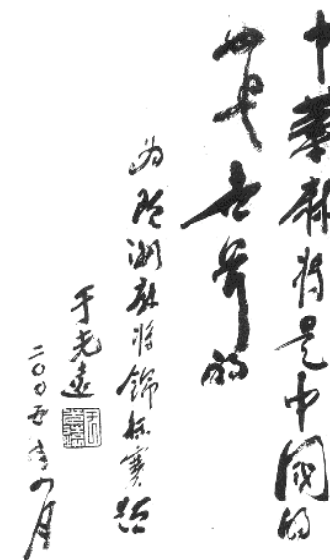 中華麻将是中国的
也是世界的
为湖麻将錦标賽题
于光遠
二〇〇五年四月